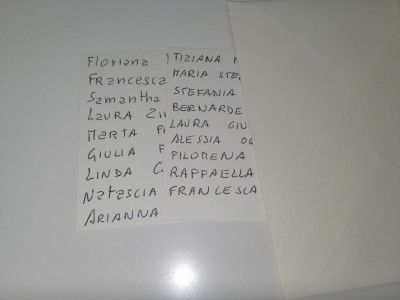 Floriana
Francesca
Samantha
LAURA
MARTA
GIULIA
LINDA
NATASCIA
ARIANNA
TIZIANA
MARIA
STEFANIA
BERNARDE
LAURA GIU
ALESSIA
FILOMENA
RAFFAELLA
FRANCESCA